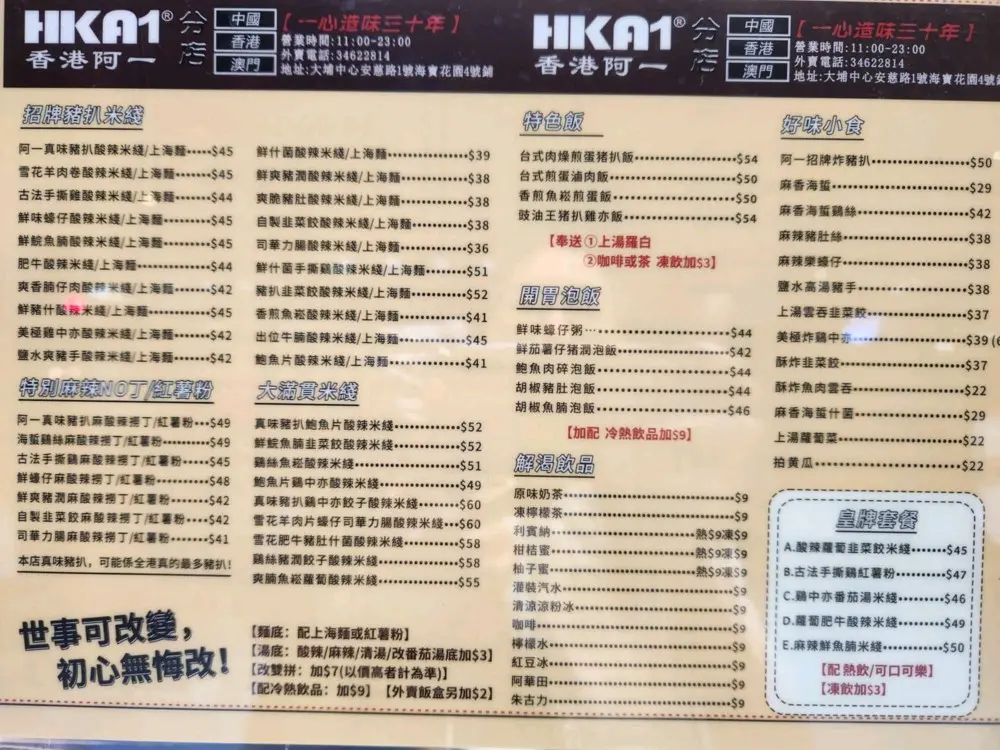 HKA1®
香港阿一
分店
中國
香港
澳門
【一心造味三十年】
營業時間:11:00-23:00
外賣電話:34622814
地址:大埔中心安慈路1號海寶花園4號鋪
招牌豬扒米綫
阿一真味豬扒酸辣米綫/上海麵·····$45
雪花羊肉卷酸辣米綫/上海麵······$45
古法手撕雞酸辣米綫/上海麵······$44
鮮味蠔仔酸辣米綫/上海麵········$45
鮮鯇魚腩酸辣米綫/上海麵········$45
肥牛酸辣米綫/上海麵············$44
爽香腩仔肉酸辣米綫/上海麵······$42
鮮豬什酸辣米綫/上海麵··········$45
美極雞中亦酸辣米綫/上海麵······$42
鹽水爽豬手酸辣米綫/上海麵······$42
鮮什菌酸辣米綫/上海麵··········$39
鮮爽豬潤酸辣米綫/上海麵········$38
爽脆豬肚酸辣米綫/上海麵········$38
自製韭菜餃酸辣米綫/上海麵······$38
司華力腸酸辣米綫/上海麵········$36
鮮什菌手撕鷄酸辣米綫/上海麵····$51
豬扒韭菜餃酸辣米綫/上海麵······$52
香煎魚崧酸辣米綫/上海麵········$41
出位牛腩酸辣米綫/上海麵········$45
鮑魚片酸辣米綫/上海麵··········$41
特別麻辣NO丁/紅薯粉
阿一真味豬扒麻酸辣撈丁/紅薯粉···$49
海蜇鷄絲麻酸辣撈丁/紅薯粉·····$49
古法手撕鷄麻酸辣撈丁/紅薯粉····$45
鮮蠔仔麻酸辣撈丁/紅薯粉·······$48
鮮爽豬潤麻酸辣撈丁/紅薯粉·····$42
自製韭菜餃麻酸辣撈丁/紅薯粉····$42
司華力腸麻酸辣撈丁/紅薯粉·····$41
本店真味豬扒，可能係全港真的最多豬扒!
大滿貫米綫
真味豬扒鮑魚片酸辣米綫·········$52
鮮鯇魚腩韭菜餃酸辣米綫·········$52
鷄絲魚崧酸辣米綫···············$51
鮑魚片鷄中亦酸辣米綫···········$49
真味豬扒鷄中亦餃子酸辣米綫·····$60
雪花羊肉片蠔仔司華力腸酸辣米綫···$60
雪花肥牛豬肚什菌酸辣米綫·······$58
鷄絲豬潤餃子酸辣米綫···········$58
爽腩魚崧蘿蔔酸辣米綫···········$55
世事可改變，
初心無悔改!
【麵底：配上海麵或紅薯粉】
【湯底：酸辣/麻辣/清湯/改番茄湯底加$3】
【改雙拼：加$7(以價高者計為準)】
【配冷熱飲品：加$9】【外賣飯盒另加$2】
HKA1®
香港阿一
分店
中國
香港
澳門
【一心造味三十年】
營業時間:11:00-23:00
外賣電話:34622814
地址:大埔中心安慈路1號海寶花園4號
特色飯
台式肉燥煎蛋猪扒飯·············$54
台式煎蛋滷肉飯·················$50
香煎魚崧煎蛋飯·················$50
豉油王猪扒雞亦飯···············$54
【奉送①上湯羅白
②咖啡或茶 凍飲加$3】
開胃泡飯
鮮味蠔仔粥·····················$44
鮮茄薯仔猪潤泡飯···············$42
鮑魚肉碎泡飯···················$44
胡椒豬肚泡飯···················$44
胡椒魚腩泡飯···················$46
【加配 冷熱飲品加$9】
解渴飲品
原味奶茶·······················$9
凍檸檬茶·······················$9
利賓納·····················熱$9凍$9
柑桔蜜·····················熱$9凍$9
柚子蜜·····················熱$9凍$9
灌裝汽水·······················$9
清涼涼粉冰·····················$9
咖啡···························$9
檸檬水·························$9
紅豆冰·························$9
阿華田·························$9
朱古力·························$9
好味小食
阿一招牌炸豬扒·················$50
麻香海蜇·······················$29
麻香海蜇鷄絲···················$42
麻辣豬肚絲·····················$38
麻辣樂蠔仔·····················$38
鹽水高湯豬手···················$38
上湯雲吞韭菜餃·················$37
美極炸鷄中亦···················$39 (6
酥炸韭菜餃·····················$37
酥炸魚肉雲吞···················$22
麻香海蜇什菌···················$29
上湯蘿蔔菜·····················$22
拍黄瓜·························$22
皇牌套餐
A.酸辣蘿蔔韭菜餃米綫·······$45
B.古法手撕鷄紅薯粉·········$47
C.鷄中亦番茄湯米綫·········$46
D.蘿蔔肥牛酸辣米綫·········$49
E.麻辣鮮魚腩米綫···········$50
【配 熱飲/可口可樂】
【凍飲加$3】